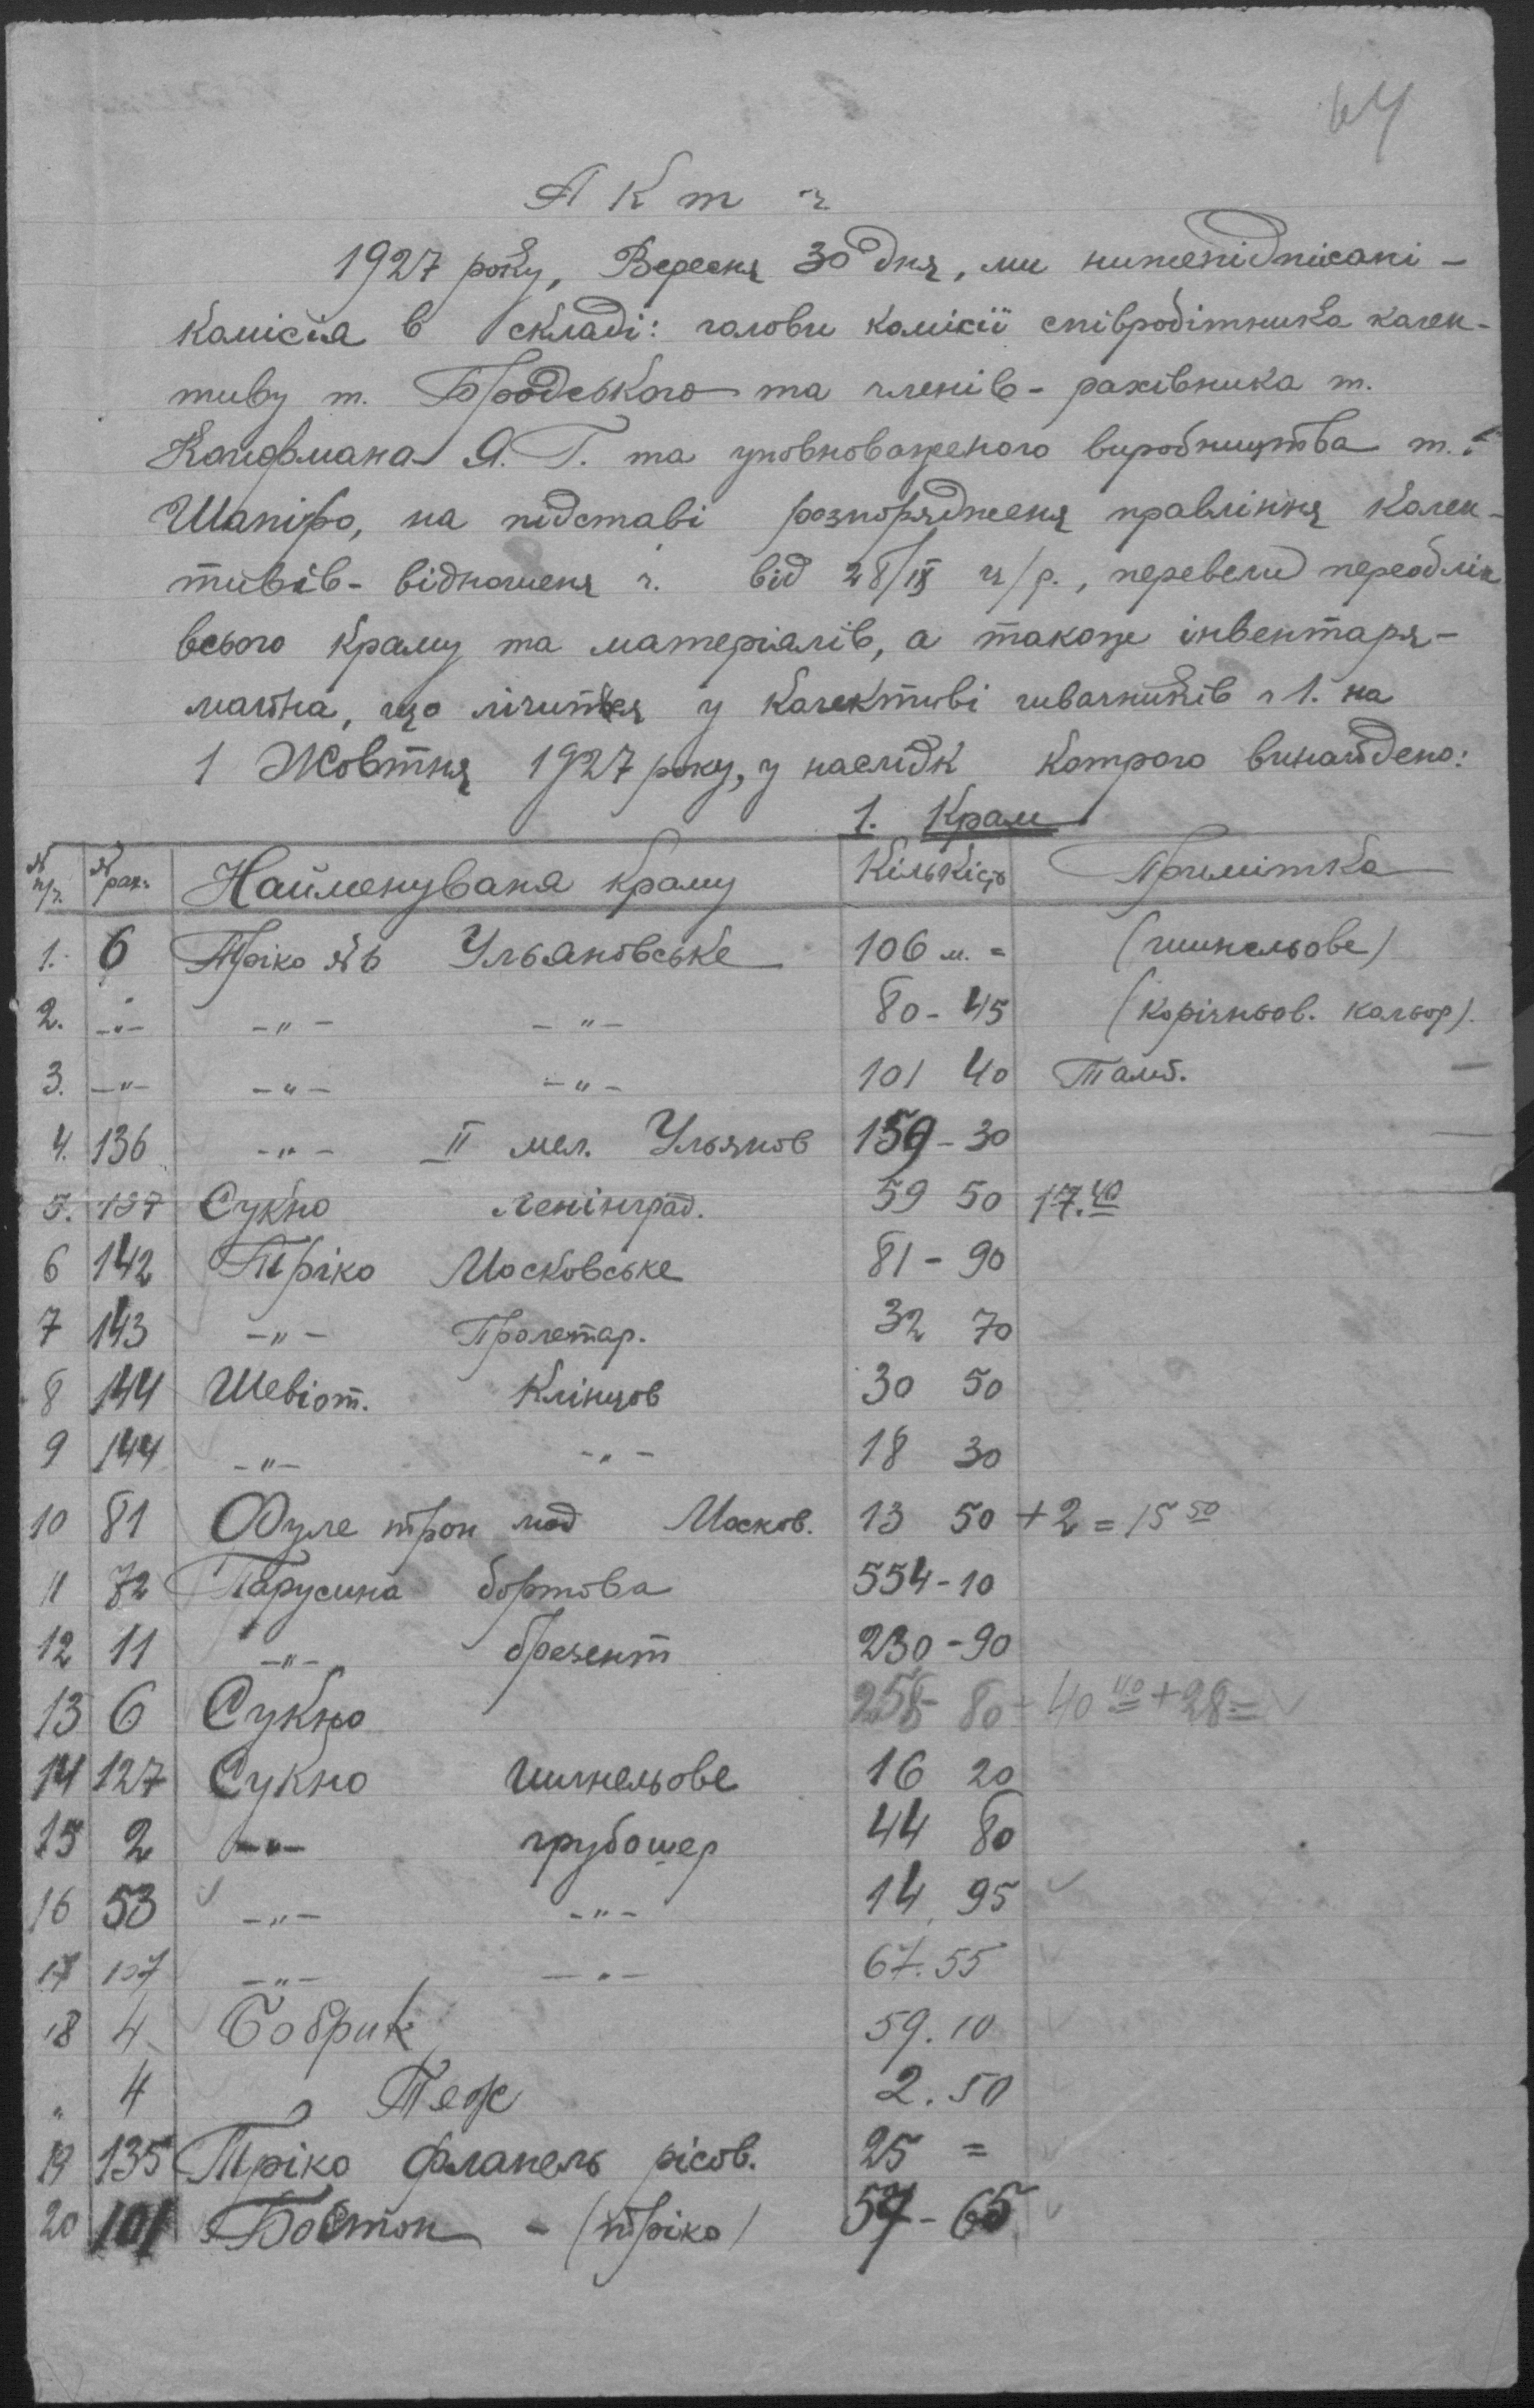 64
Акт ч.
1927 року, Вересня 30 дня, ми нижепідпісані -
комісія в складі: голови комісії співробітника колек-
тиву т. Бродського та членів - рахівника т.
Кауфмана Я. Г. та уповноваженого виробництва т.
Шапіро, на підставі розпорядженя правління колек-
тивів - відношеня ч. від 28/IX ц/р., перевели переоблік
всього краму та матеріялів, а також інвентаря -
майна, що лічиться у колективі швачників ч 1. на
1 Жовтня 1927 року, у наслідк котрого винайдено:
1. Крам
№ п/ч. № рах. Найменуваня краму Кількість Примітка
1. 6 Тріко №6 Ульяновське 106 м. = (шинельове)
2. -"- -"- -"- 80 - 45 (корічньов. кольор).
3. -"- -"- -"- 101 40 Тамб. —
4. 136 -"- II мел. Ульянов 159 - 30
5. 137 Сукно Ленінград. 59 50 17.40
6 142 Тріко Московське 81 - 90
7 143 -"- Пролетар. 32 70
8 144 Шевіот. Клінцов 30 50
9 144 -"- -"- 18 30
10 81 трон мод Москов. 13 50 + 2 = 15 50
11 72 Парусина бортова 554 - 10
12 11 -"- брезент 230 - 90
13 6 Сукно 258 80 + 40 40 + 28 =
14 127 Сукно шинельове 16 20
15 2 -"- грубошер 44 80
16 53 -"- -"- 14, 95
17 107 -"- -"- 67.55
18 4 Бобрик 59.10
" 4 Теж 2.50
19 135 Тріко фланель рісов. 25 =
20 101 Бостон - (тріко) 57 - 65